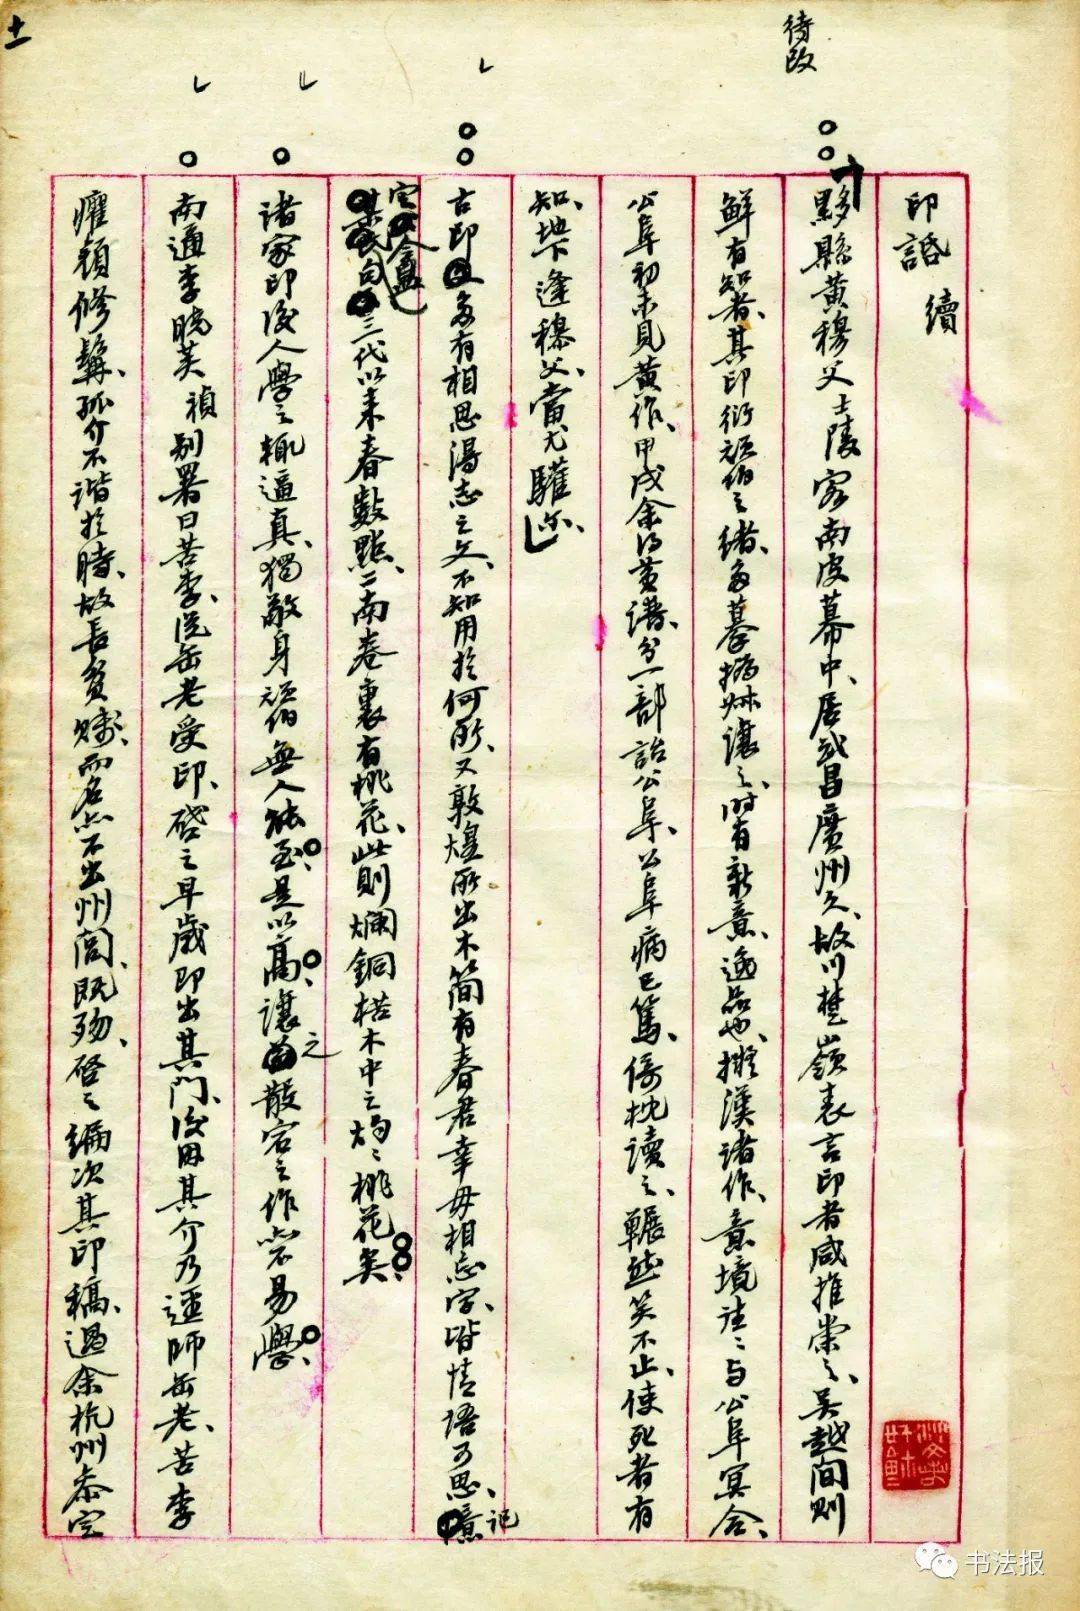 十一
待改
印話 續
黟縣黃穆父士陵客南皮幕中、居武昌廣州久、故川楚嶺表言印者咸推崇之、吳越間則
鮮有知者、其印衍頑伯之緒、多摹撝叔讓之、時有新意、逸品也、擬漢諸作、意境往往與公阜冥合、
公阜初未見黃作、甲戌余得黃譜、分一部詒公阜、公阜病已篤、倚枕讀之、囅然笑不止、使死者有
知、地下逢穆父、當尤驩尔、
古印多有相思得志之文、不知用於何所、又敦煌所出木簡有春君幸毋相忘字、皆情語可思、記
定盦
句三代以来春數點、二南卷裏有桃花、此則爛銅枯木中之灼灼桃花矣、
諸家印後人學之輒逼真、獨敬身頑伯無人能至、是以高、讓之散宕之作亦不易學、
南通李曉芙禎别署曰苦李、從缶老受印、啓之早歲即出其門、後因其介乃逕師缶老、苦李
癯顏修髯、孤介不諧於時、故長貧賤、而名亦不出州閭、既歿、啓之編次其印稿、過余杭州忝定
书法报